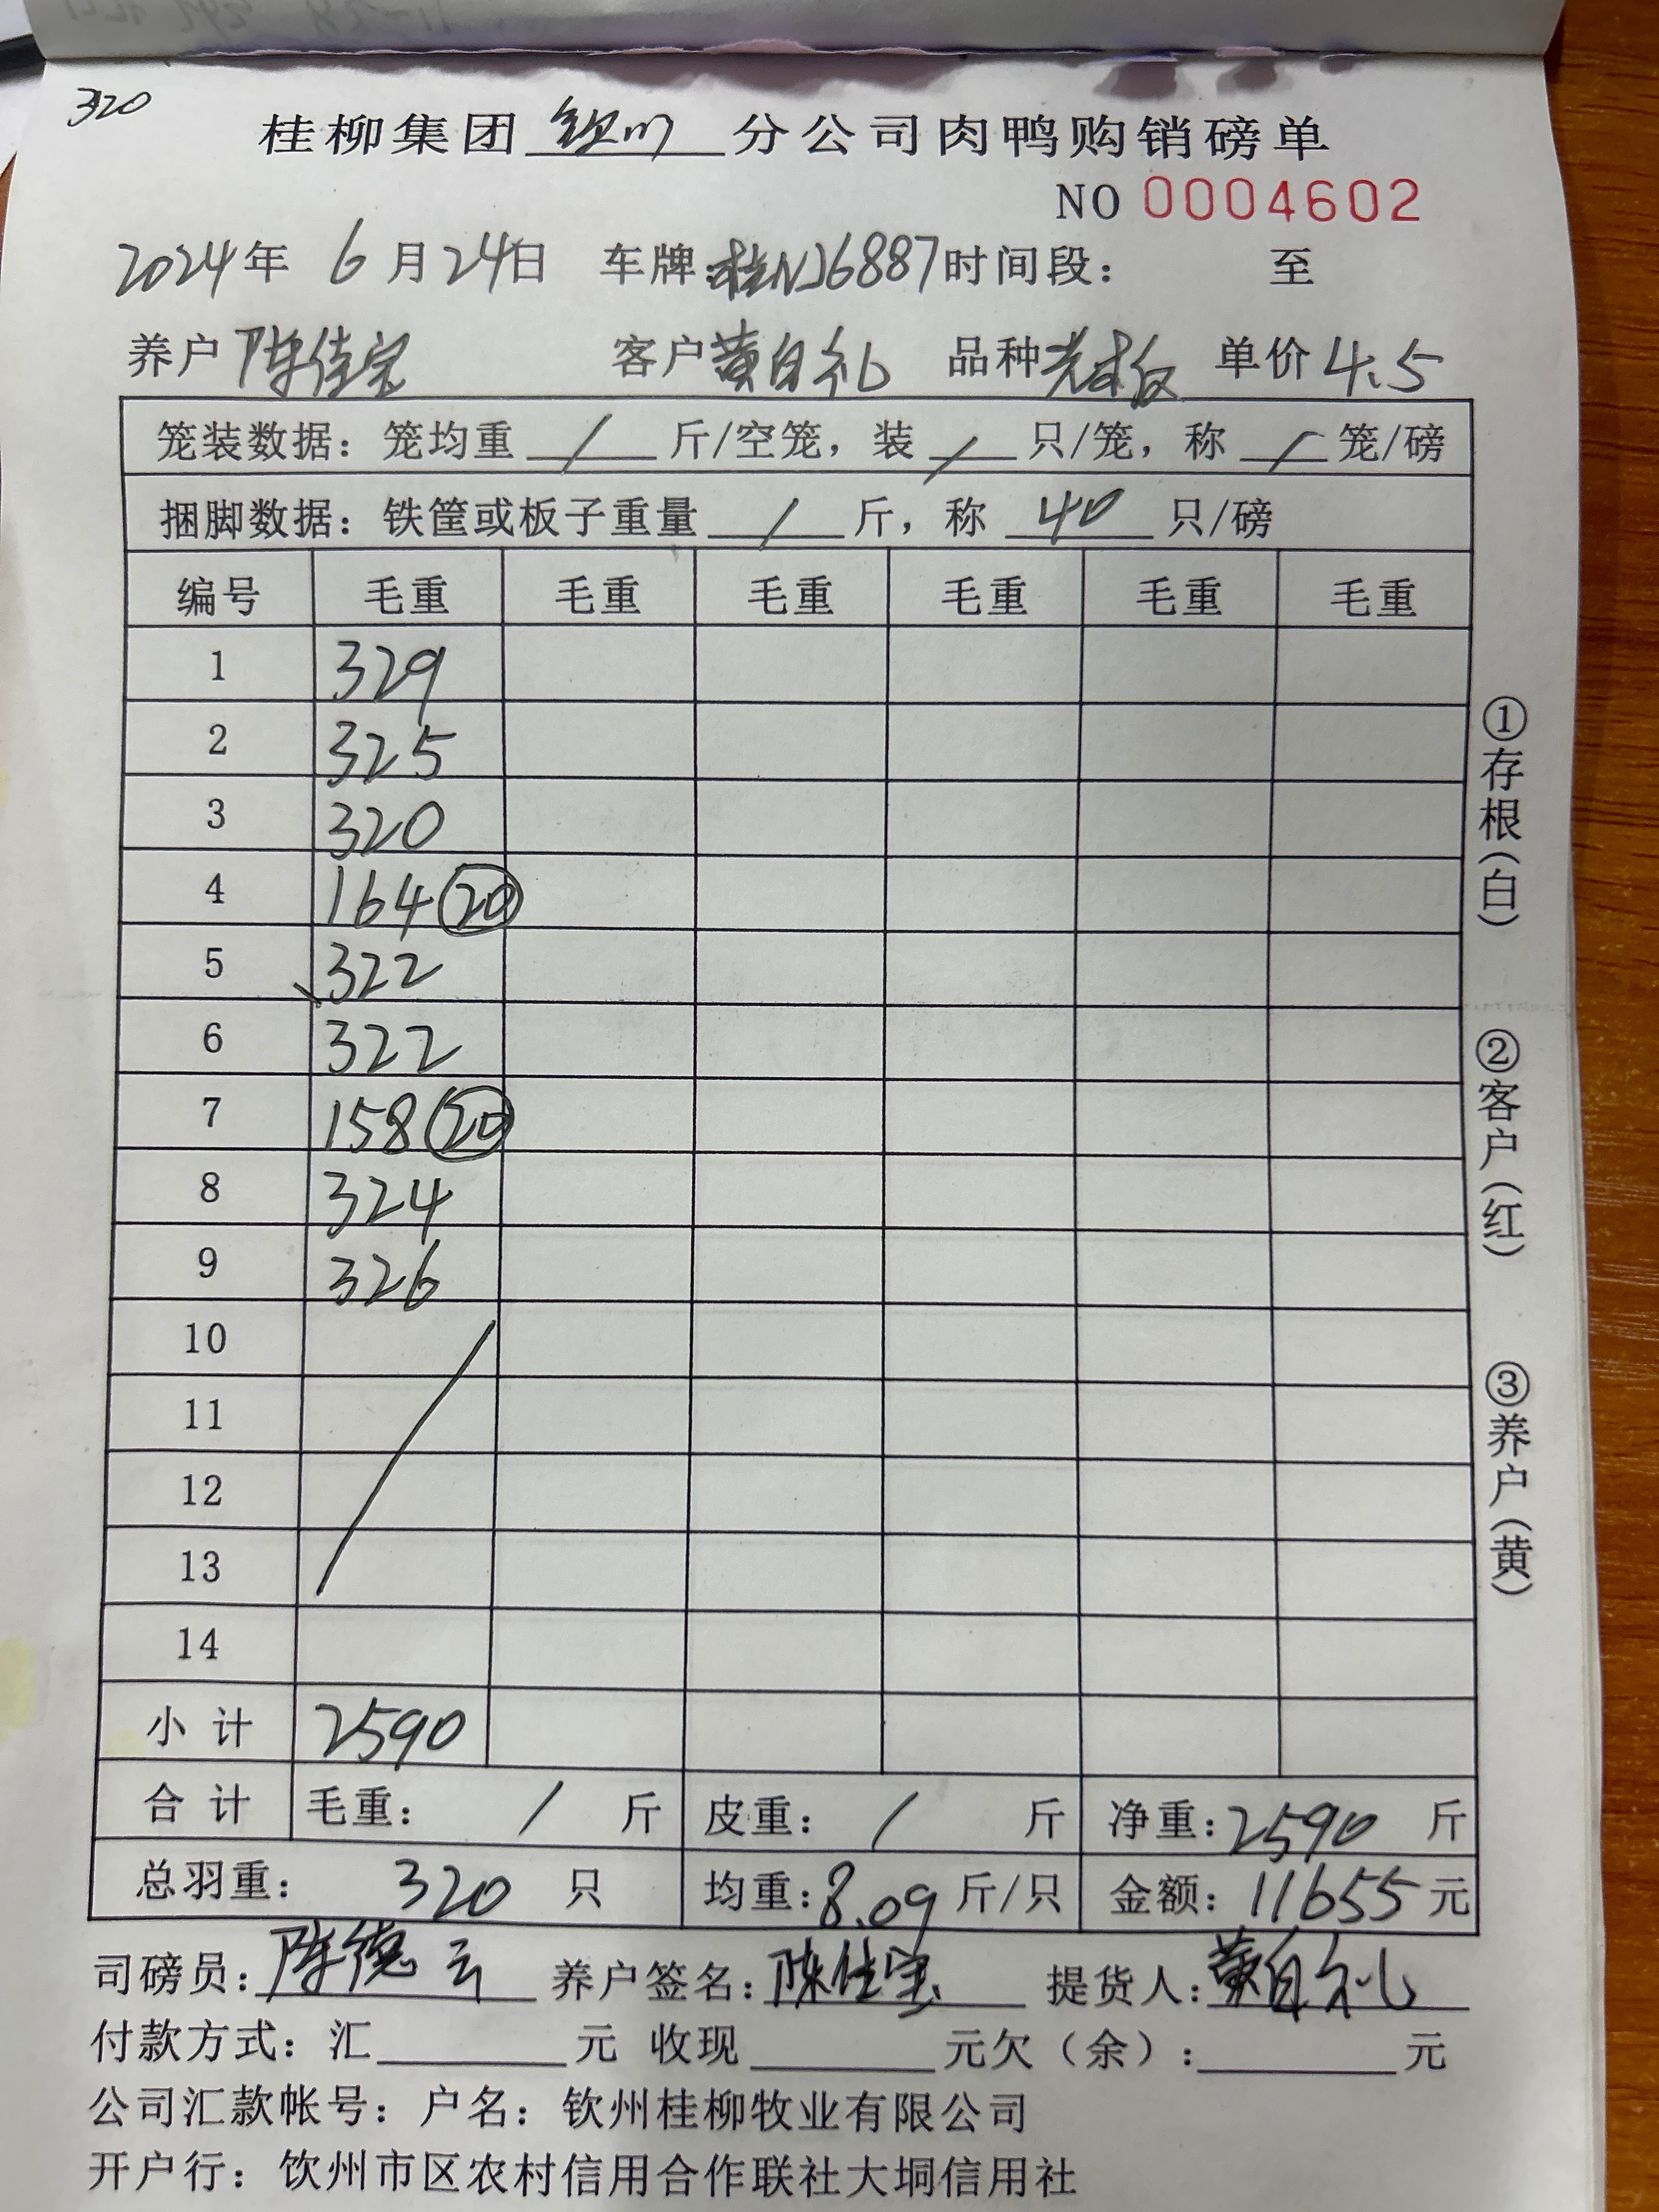 320
桂柳集团 钦州 分公司肉鸭购销磅单
NO 0004602
2024年 6月24日 车牌:桂NJ6887时间段: 至
养户 陈佳宝 客户 黄自礼 品种 单价 4.5
笼装数据: 笼均重 / 斤/空笼, 装 / 只/笼, 称 / 笼/磅
捆脚数据: 铁筐或板子重量 / 斤, 称 40 只/磅
编号 毛重 毛重 毛重 毛重 毛重 毛重
1 329
2 325
3 320
4 164 20
5 322
6 322
7 158 20
8 324
9 326
10
11
12
13
14
小计 2590
合计 毛重: / 斤 皮重: / 斤 净重:2590 斤
总羽重: 320 只 均重:8.09 斤/只 金额: 11655 元
司磅员: 陈德云 养户签名: 陈佳宝 提货人: 黄自礼
付款方式: 汇 元 收现 元欠(余): 元
公司汇款帐号: 户名: 钦州桂柳牧业有限公司
开户行: 饮州市区农村信用合作联社大垌信用社
①存根(白)
②客户(红)
③养户(黄)